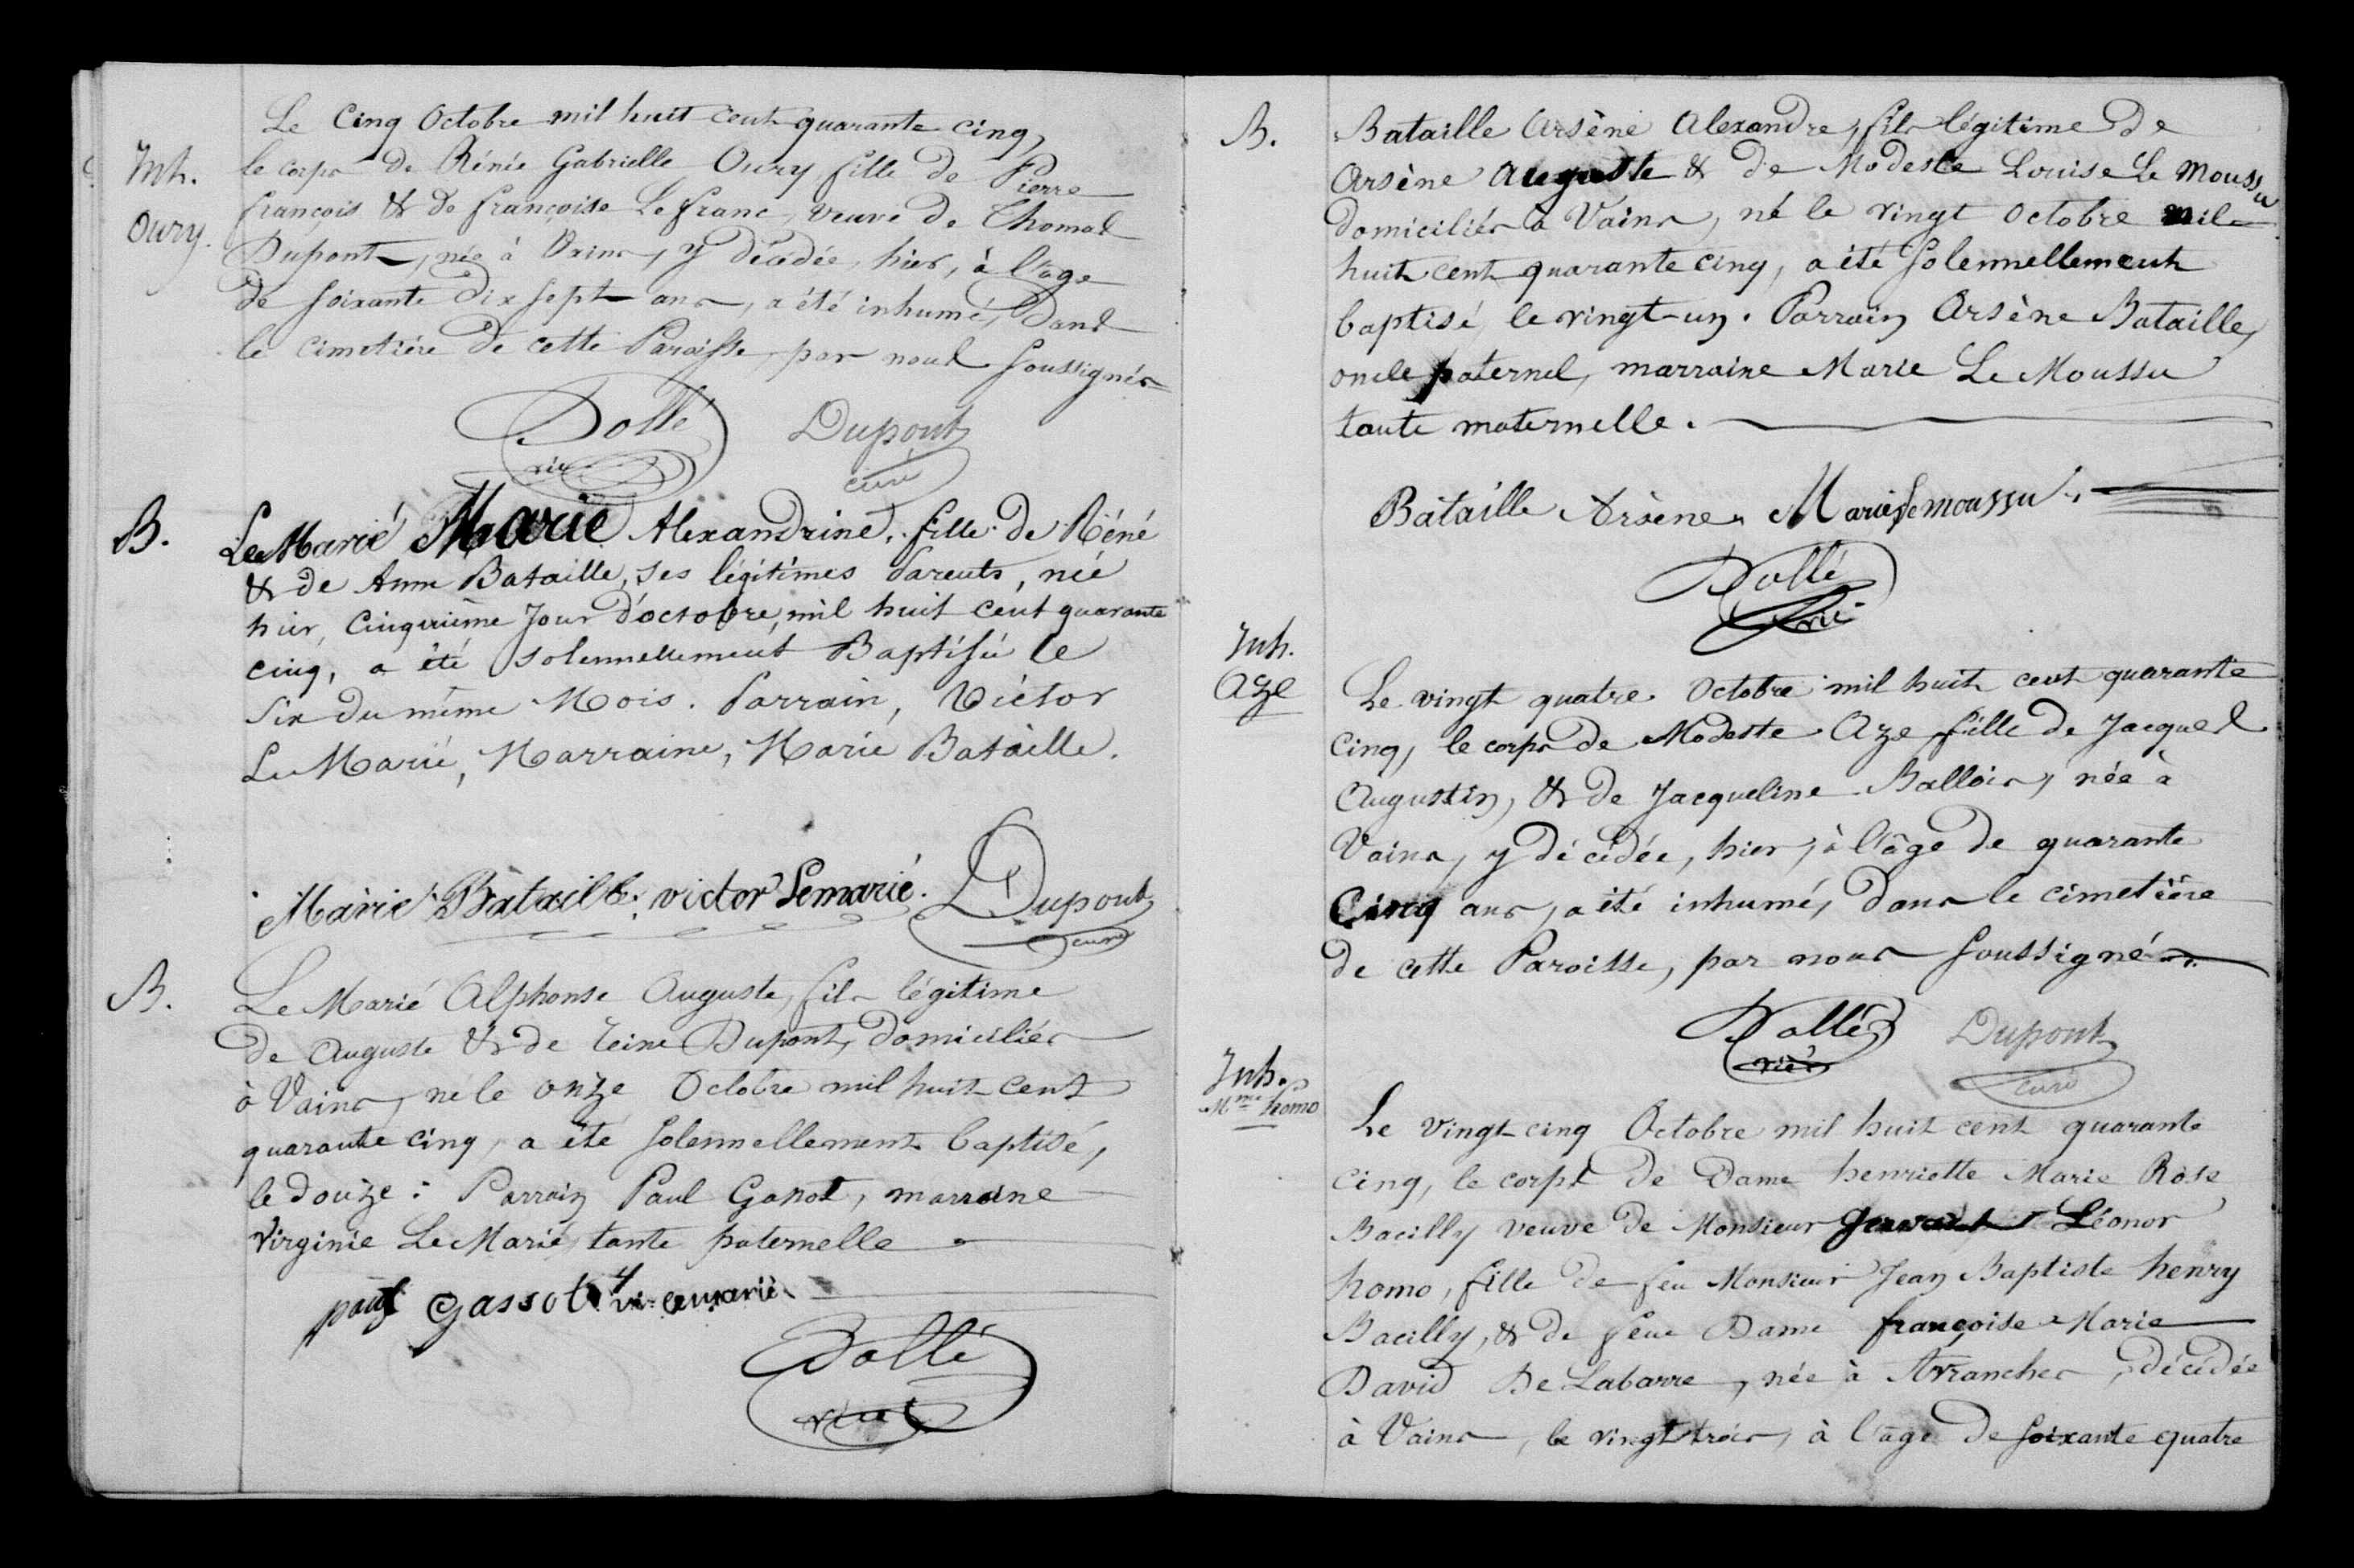 Le Cinq Octobre mil huit cent quarante cinq,
Inh.
Oury.
le corps de Rénée Gabrielle Oury fille de Pierre
françois & de françoise Le franc, veuve de Thomas
Dupont, née à Vains, y décédée, hier, à l'âge
de soixante dix sept ans, a été inhumé, dans
le cimetière de cette Paroisse, par nous soussignés
Dollé Dupont
vic curé
B.
Le Marié Marie Alexandrine, fille de Réné
& de Anne Bataille, ses légitimes Parents, née
hier, Cinquième Jour d'octobre, mil huit cent quarante
cinq, a été solennellement Baptisée le
Six du même Mois. Parrain, Victor
Le Marié, Marraine, Marie Bataille.
Marie Bataille. victor Lemarié. Dupont
curé
B.
Le Marié Alphonse Auguste, fils légitime
de Auguste & de Reine Dupont, Domiciliés
à Vains, né le onze Octobre mil huit cent
quarante cinq, a été solennellement baptisé,
le douze : Parrain Paul Ganot, marraine
Virginie Le Marié, tante paternelle
paul Gassot vi. lemarié
Dollé
vic
B.
Bataille Arsène Alexandre, fils légitime de
Arsène Auguste & de Modeste Louise Le Moussu
domiciliés à Vains, né le vingt Octobre mil
huit cent quarante cinq, a été solennellement
baptisé, le vingt-un. Parrain Arsène Bataille,
oncle paternel, marraine Marie Le Moussu
tante maternelle.
Bataille Arsène. Marie Lemoussu
Dollé
vic
Inh.
Aze
Le vingt quatre Octobre mil huit cent quarante
Cinq, le corps de Modeste Aze fille de Jacques
Augustin, & de Jacqueline Ballois, née à
Vains, y décédée, hier, à l'âge de quarante
Cinq ans, a été inhumé, dans le cimetière
de cette Paroisse, par nous soussignés.
Dollé Dupont
vic curé
Inh.
Mme homo
Le vingt cinq Octobre mil huit cent quarante
Cinq, le corps de Dame henriette Marie Rose
Bacilly veuve de Monsieur Léonor
homo, fille de feu Monsieur Jean Baptiste henry
Bacilly, & de feue Dame françoise Marie
David De Labarre, née à Avranches, décédée
à Vains, le vingt trois, à l'âge de soixante quatre